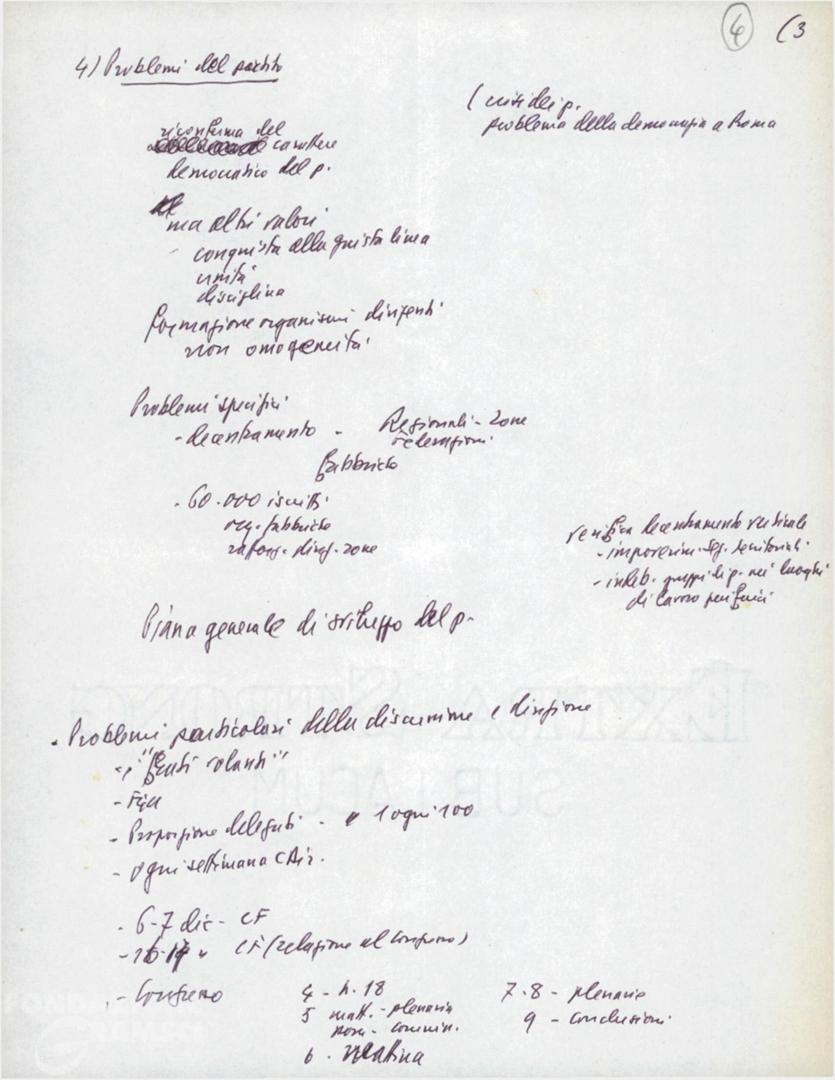 4 (3
4) Problemi del partito
( crisi dei p.
problema della democrazia a Roma
riconferma del
carattere
democratico del p.
ma altri valori
- conquista alla giusta linea
unità
disciplina
formazione organismi dirigenti
non omogeneità
Problemi specifici
- decentramento - Regionali - zone
federazioni
fabbriche
- 60.000 iscritti
org. fabbriche
rafforz. dirig. zone
verifica decentramento verticale
- impoverim. seg. territoriali
- indeb. gruppi di p. nei luoghi
di lavoro periferici
Piano generale di sviluppo del p.
. Problemi particolari della discussione e direzione
- i "frati volanti"
- Proporzione delegati - 1 ogni 100
- ogni settimana C Dir.
- 6-7 dic - CF
- 16-17 " CF (relazione al Congresso)
- Congresso 4 - h. 18 7-8 - plenarie
5 matt. - plenaria 9 - conclusioni
pom. - commiss.
6 - mattina
EXTRA STRONG
SUBLACUM